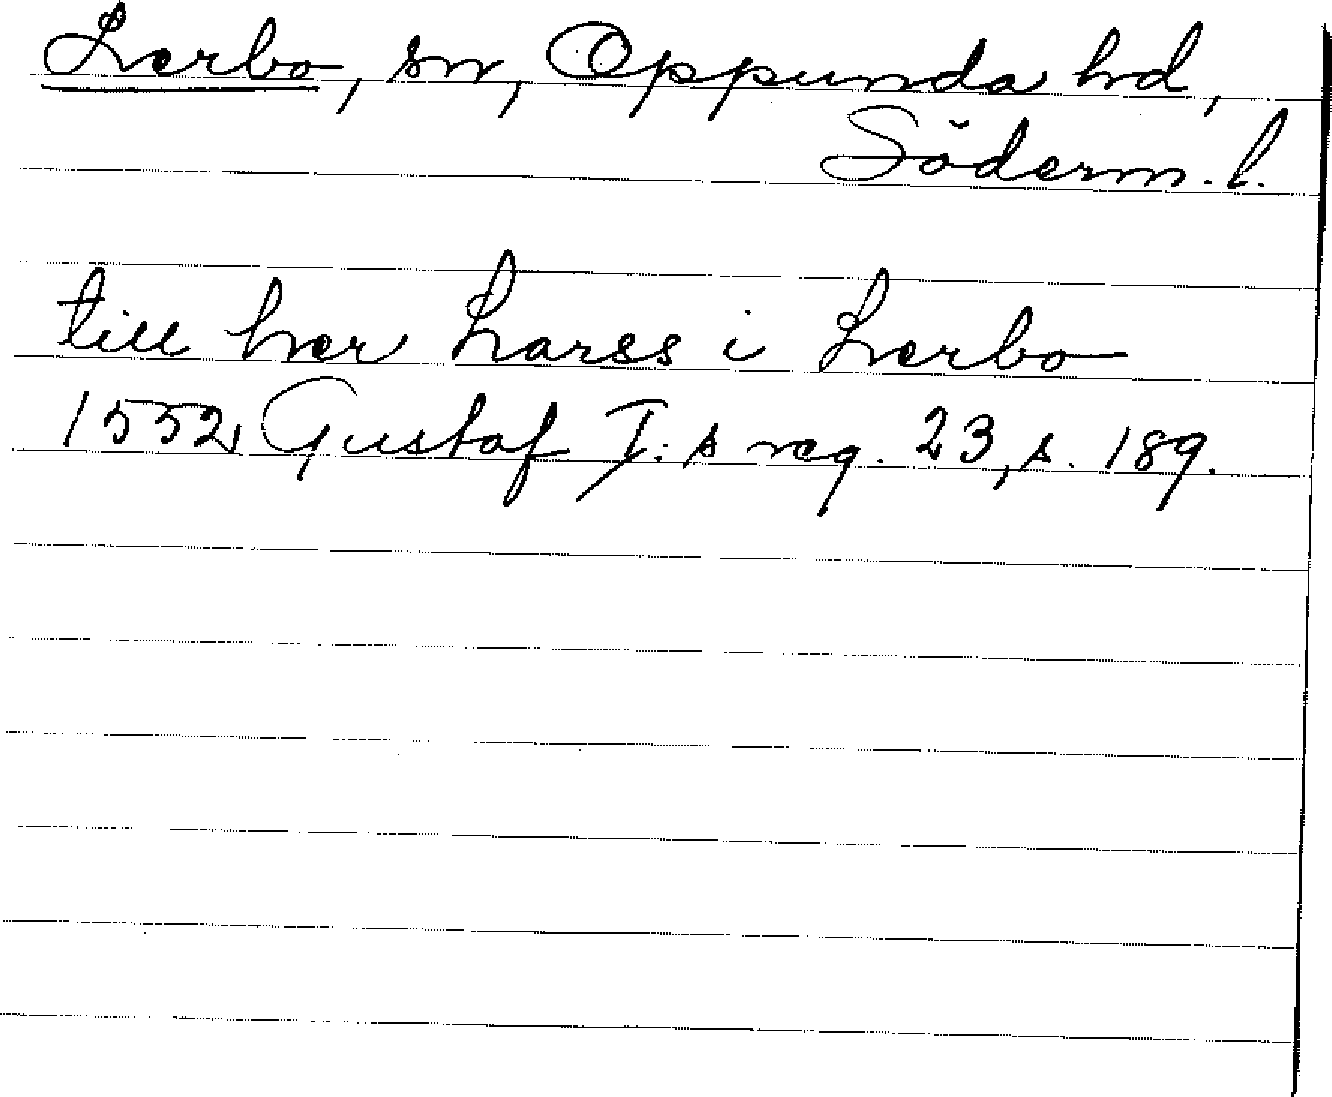 Lerbo, sn, Oppunda hd,
Söderm. l.
till her Larss i Lerbo
1552 Gustaf I:s reg. 23, s. 189.